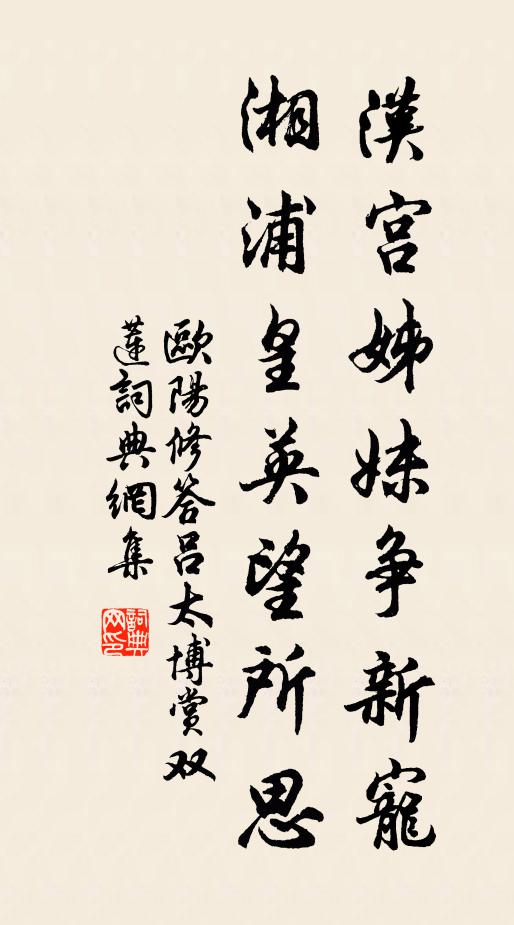 漢宮姊妹争新寵
湘浦皇英望所思
歐陽修答呂太博賞双
蓮詞典網集
詞典网印